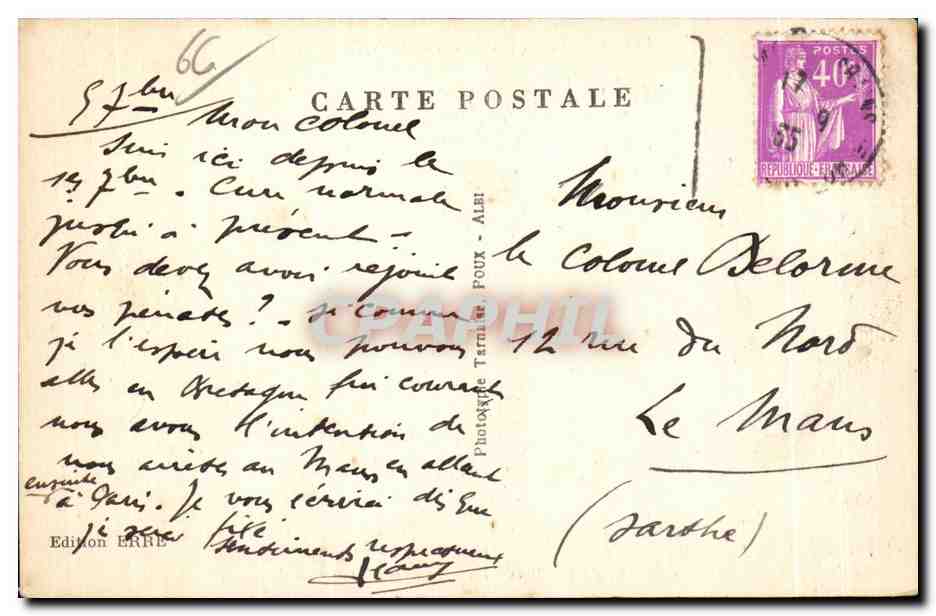 66
5 7bre
CARTE POSTALE
Mon colonel
Suis ici depuis le
1er 7bre. Cure normale
jusqu'à présent.
Vous devez avoir rejoint
vos pénates ? - si comme
je l'espère nous pouvons
aller en Bretagne fin courant
nous avons l'intention de
nous arrêter au Mans en allant
ensuite
à Paris. Je vous écrirai dès que
je serai fixé
sentiments respectueux
Edition ERRE
Phototypie Tarnaise, POUX - ALBI
POSTES
40c
REPUBLIQUE FRANCAISE
17
9
35
Monsieur
le Colonel Delorme
12 rue du Nord
Le Mans
(Sarthe)
CPAPHIL